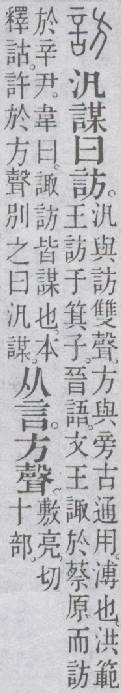 訪 汎謀曰訪。汎與訪雙聲。方與旁古通用。溥也。洪範王訪于箕子。晉語。文王諏於蔡原。而訪
於辛尹。韋曰。諏訪皆謀也。本釋詁。許於方聲別之曰汎謀。从言。方聲。敷亮切。十部。